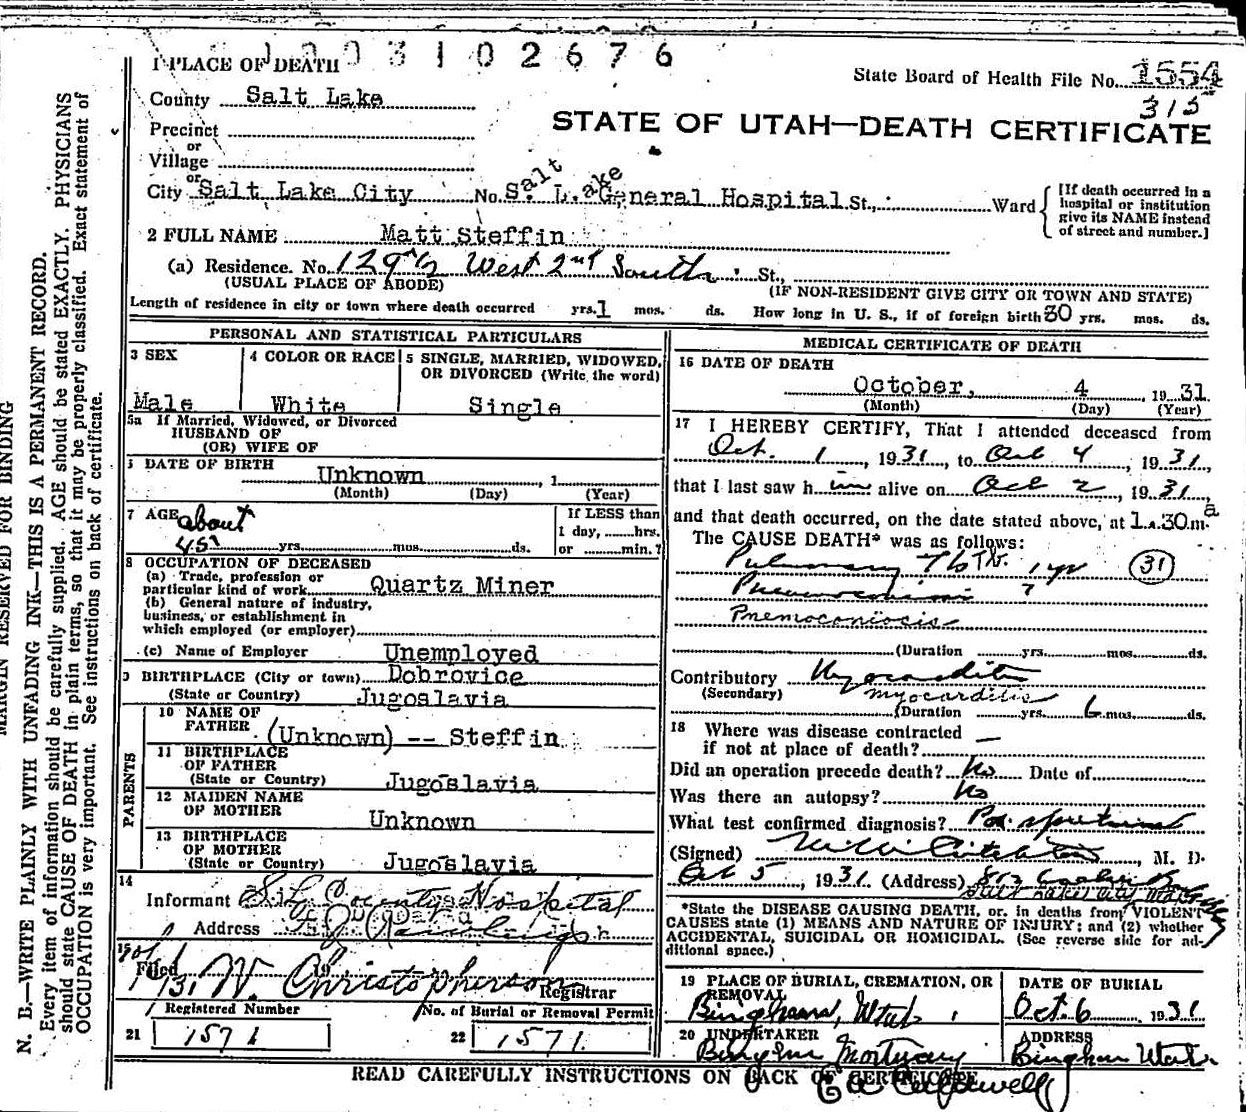 1003102676
1 PLACE OF DEATH
State Board of Health File No. 1554
315
County Salt Lake
STATE OF UTAH—DEATH CERTIFICATE
Precinct
or
Village
or
City Salt Lake City No. S. L. General Hospital St., Ward
Salt Lake
[If death occurred in a
hospital or institution
give its NAME instead
of street and number.]
2 FULL NAME Matt Steffin
(a) Residence. No. 129 1/2 West 2nd South St.,
(USUAL PLACE OF ABODE) (IF NON-RESIDENT GIVE CITY OR TOWN AND STATE)
Length of residence in city or town where death occurred yrs. 1 mos. ds. How long in U. S., if of foreign birth 30 yrs. mos. ds.
PERSONAL AND STATISTICAL PARTICULARS
3 SEX
Male
4 COLOR OR RACE
White
5 SINGLE, MARRIED, WIDOWED,
OR DIVORCED (Write the word)
Single
5a If Married, Widowed, or Divorced
HUSBAND OF
(OR) WIFE OF
DATE OF BIRTH
Unknown , 1
(Month) (Day) (Year)
7 AGE about
45 yrs. mos. ds.
If LESS than
1 day, hrs.
or min.?
8 OCCUPATION OF DECEASED
(a) Trade, profession or
particular kind of work Quartz Miner
(b) General nature of industry,
business, or establishment in
which employed (or employer)
(c) Name of Employer Unemployed
9 BIRTHPLACE (City or town) Dobrovice
(State or Country) Jugoslavia
PARENTS
10 NAME OF
FATHER (Unknown) -- Steffin
11 BIRTHPLACE
OF FATHER
(State or Country) Jugoslavia
12 MAIDEN NAME
OF MOTHER Unknown
13 BIRTHPLACE
OF MOTHER
(State or Country) Jugoslavia
14
Informant S. L. County Hospital
Address
15
Filed W. Christopherson
Registrar
Registered Number
21 1571
No. of Burial or Removal Permit
22 1571
MEDICAL CERTIFICATE OF DEATH
16 DATE OF DEATH
October, 4 , 1931
(Month) (Day) (Year)
17 I HEREBY CERTIFY, That I attended deceased from
Oct. 1 , 1931, to Oct 4 , 1931,
that I last saw him alive on Oct 2 , 1931,
and that death occurred, on the date stated above, at 1.30 m. a
The CAUSE DEATH* was as follows:
Pulmonary Tb 1 yr 31
Pneumoconiosis ?
Pnemoconiocis
(Duration yrs. mos. ds.
Contributory Myocarditis
(Secondary) myocarditis
(Duration yrs. 6 mos. ds.
18 Where was disease contracted
if not at place of death? —
Did an operation precede death? No Date of
Was there an autopsy? No
What test confirmed diagnosis? Pos. sputum
(Signed) , M. D.
Oct 5 , 1931 (Address)
*State the DISEASE CAUSING DEATH, or, in deaths from VIOLENT
CAUSES state (1) MEANS AND NATURE OF INJURY; and (2) whether
ACCIDENTAL, SUICIDAL OR HOMICIDAL. (See reverse side for ad-
ditional space.)
19 PLACE OF BURIAL, CREMATION, OR
REMOVAL
Bingham, Utah
DATE OF BURIAL
Oct. 6 1931
20 UNDERTAKER
Bingham Mortuary
ADDRESS
Bingham Utah
READ CAREFULLY INSTRUCTIONS ON BACK OF CERTIFICATE
MARGIN RESERVED FOR BINDING
N. B.—WRITE PLAINLY WITH UNFADING INK—THIS IS A PERMANENT RECORD.
Every item of information should be carefully supplied. AGE should be stated EXACTLY. PHYSICIANS
should state CAUSE OF DEATH in plain terms, so that it may be properly classified. Exact statement of
OCCUPATION is very important. See instructions on back of certificate.